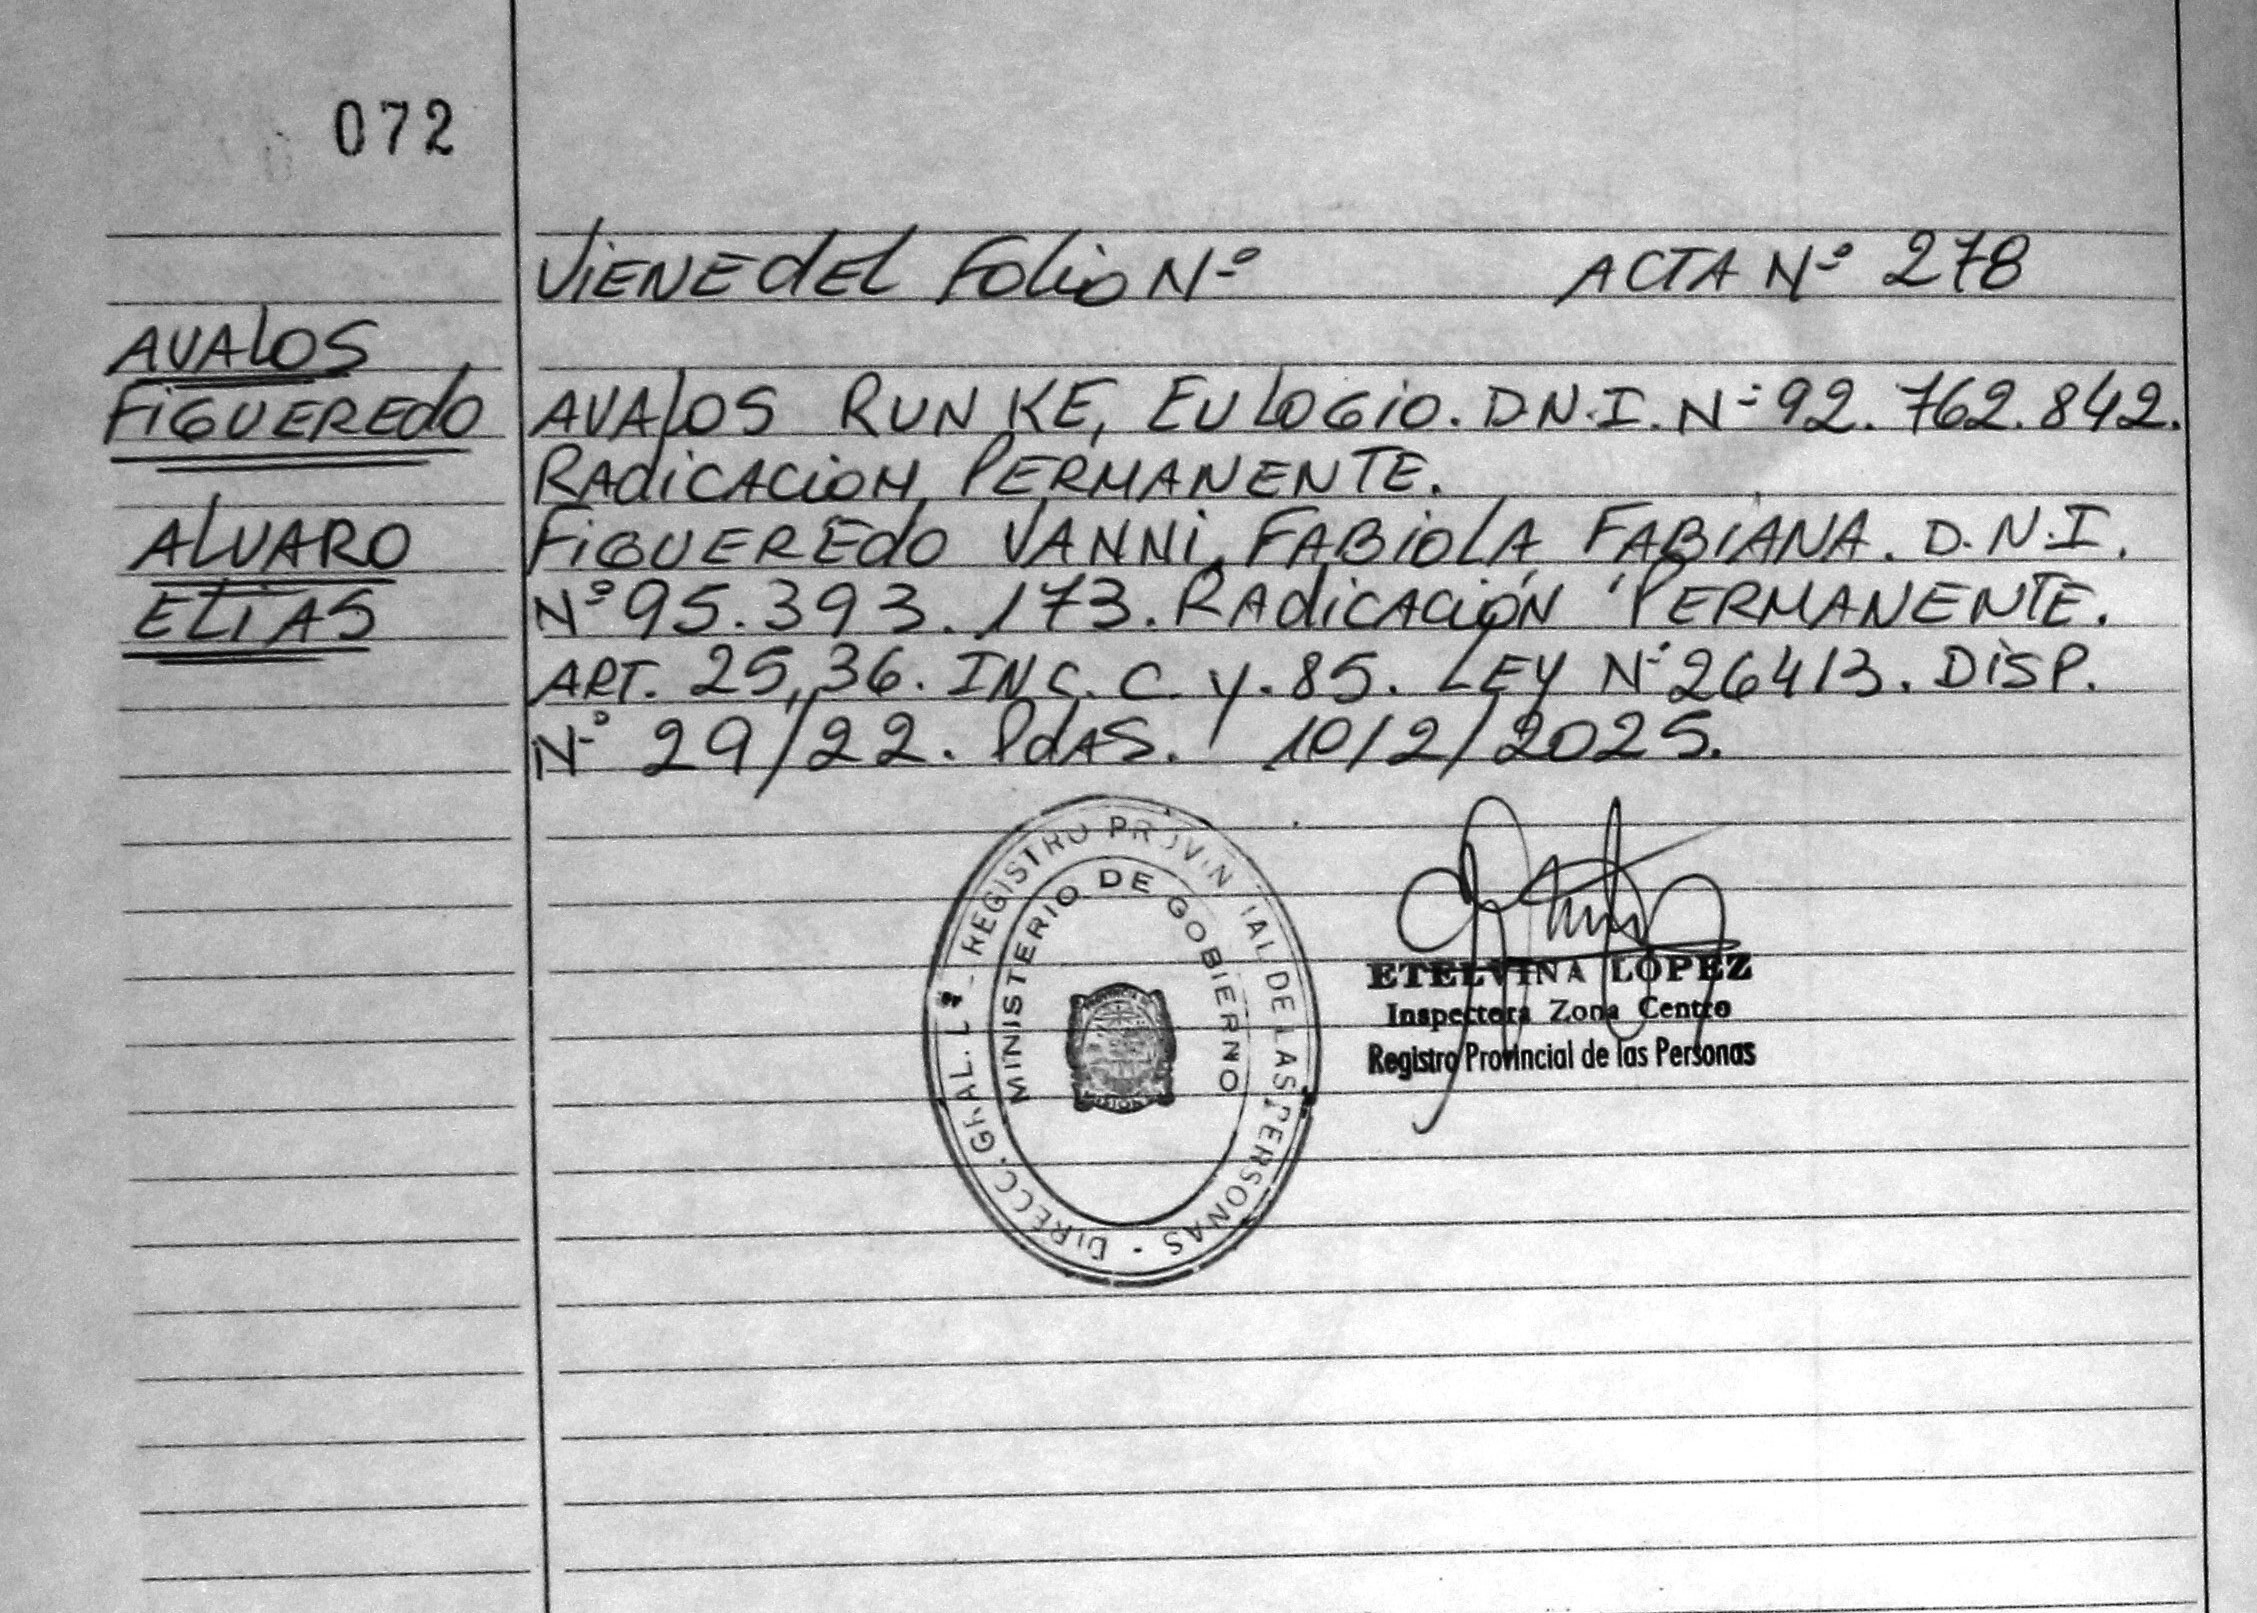 072
VIENE DEL FOLIO Nº ACTA Nº 278
AVALOS
FIGUEREDO
ALVARO
ELIAS
AVALOS RUNKE, EULOGIO. D.N.I. Nº 92.762.842.
RADICACION PERMANENTE.
FIGUEREDO VANNI, FABIOLA FABIANA. D.N.I.
Nº 95.393.173. RADICACIÓN PERMANENTE.
ART. 25, 36. INC. C. Y. 85. LEY Nº 26413. DISP.
Nº 29/22. PdAS. 10/2/2025.
DIRECC. GRAL. REGISTRO PROVINCIAL DE LAS PERSONAS
MINISTERIO DE GOBIERNO
ETELVINA LOPEZ
Inspectora Zona Centro
Registro Provincial de las Personas